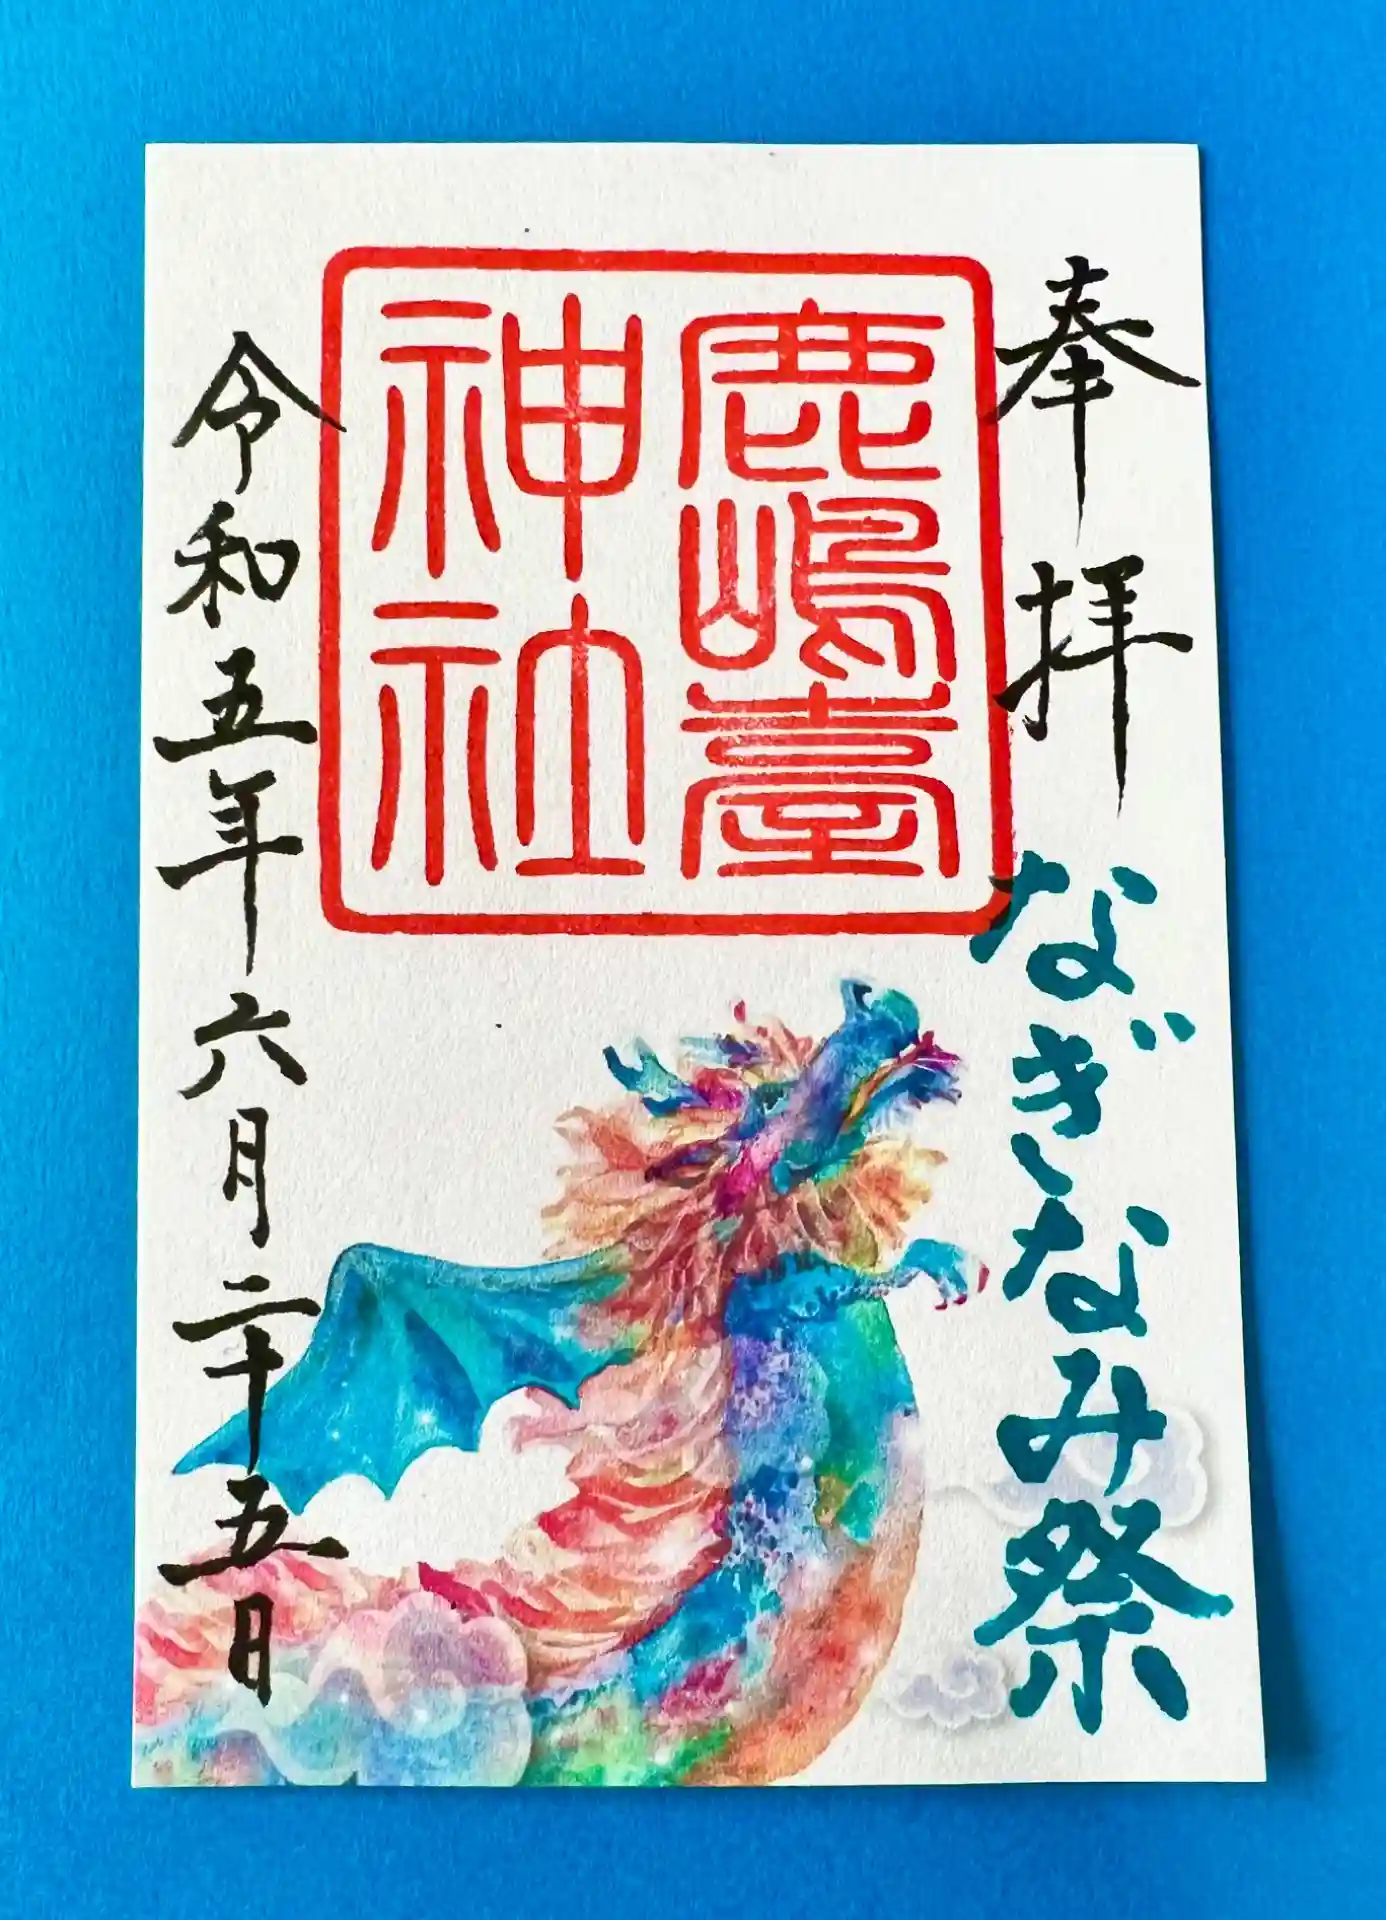 奉拝
なぎなみ祭
鹿嶋臺
神社
令和五年六月二十五日